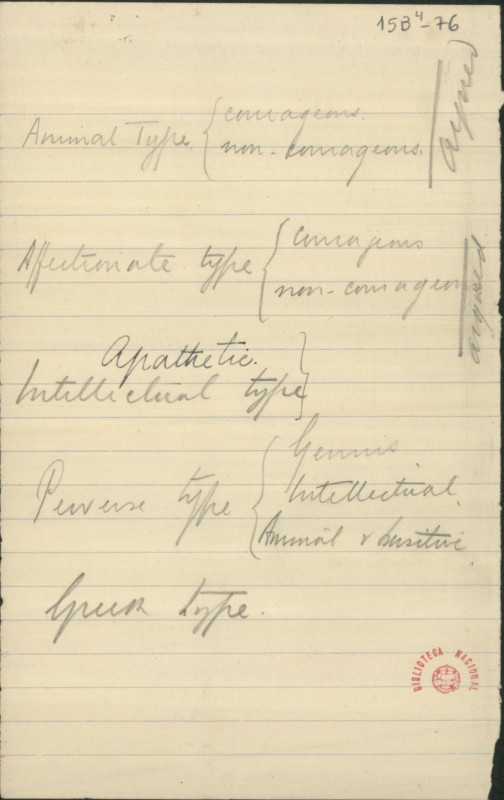 15B⁴-76
Animal Type { courageous.
non-courageous.
argued
Affectionate type { courageous
non-courageous
argued
Apathetic. }
Intellectual type
Perverse type { Genius
Intellectual.
Animal & sensitive
Greek type.
BIBLIOTECA NACIONAL